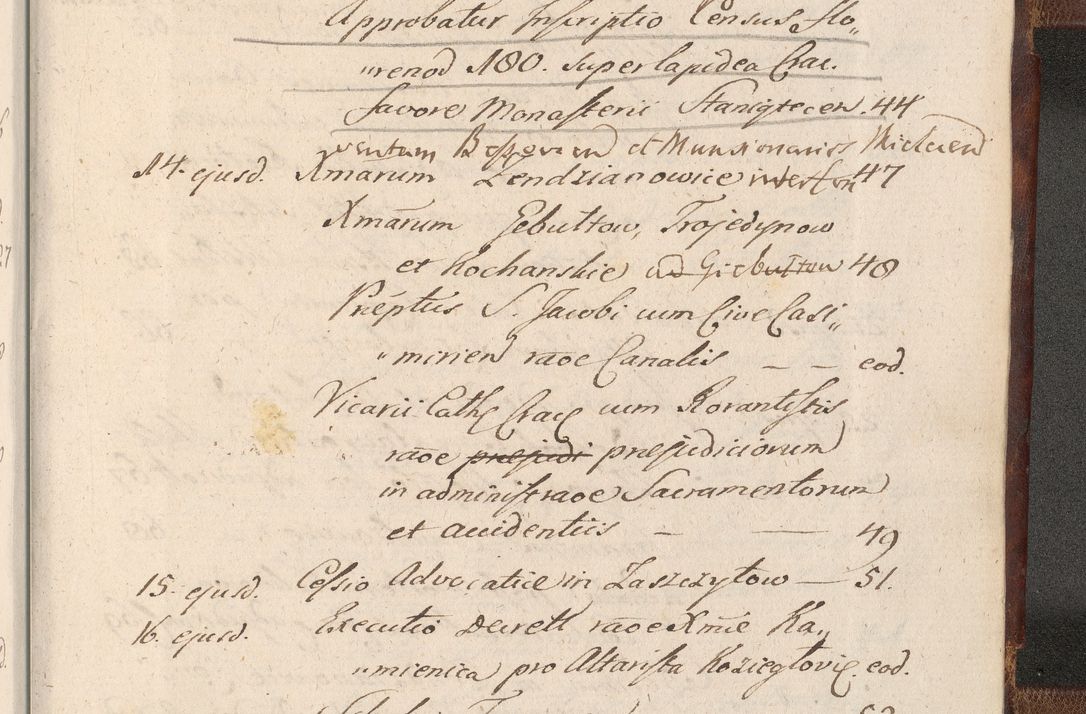 Approbatur Inscriptio Census flo„
„renod 180. super lapidea Crac.
favore Monasterii Staniątecen. 44
ventum et Munsionarios
14. ejusd. Xmarum Zendzianowice 47
Xmarum Gebultow, Trojedynow
et Kochanskie ad Giebultow 48
Präeptus S. Jacobi cum Cive Casi„
„mirien raõe Canalis — — eod.
Vicarii Cath Crac cum Rorantistis
raõe præjudi præjudiciorum
in administraõe Sacramentorum
et accidentiis — — 49
15. ejusd. Cessio Advocatiæ in Zaszczytow — 51.
16. ejusd. Executio Decreti raõe Xmæ Ka„
„mienica pro Altarista Koziegłovi eod.